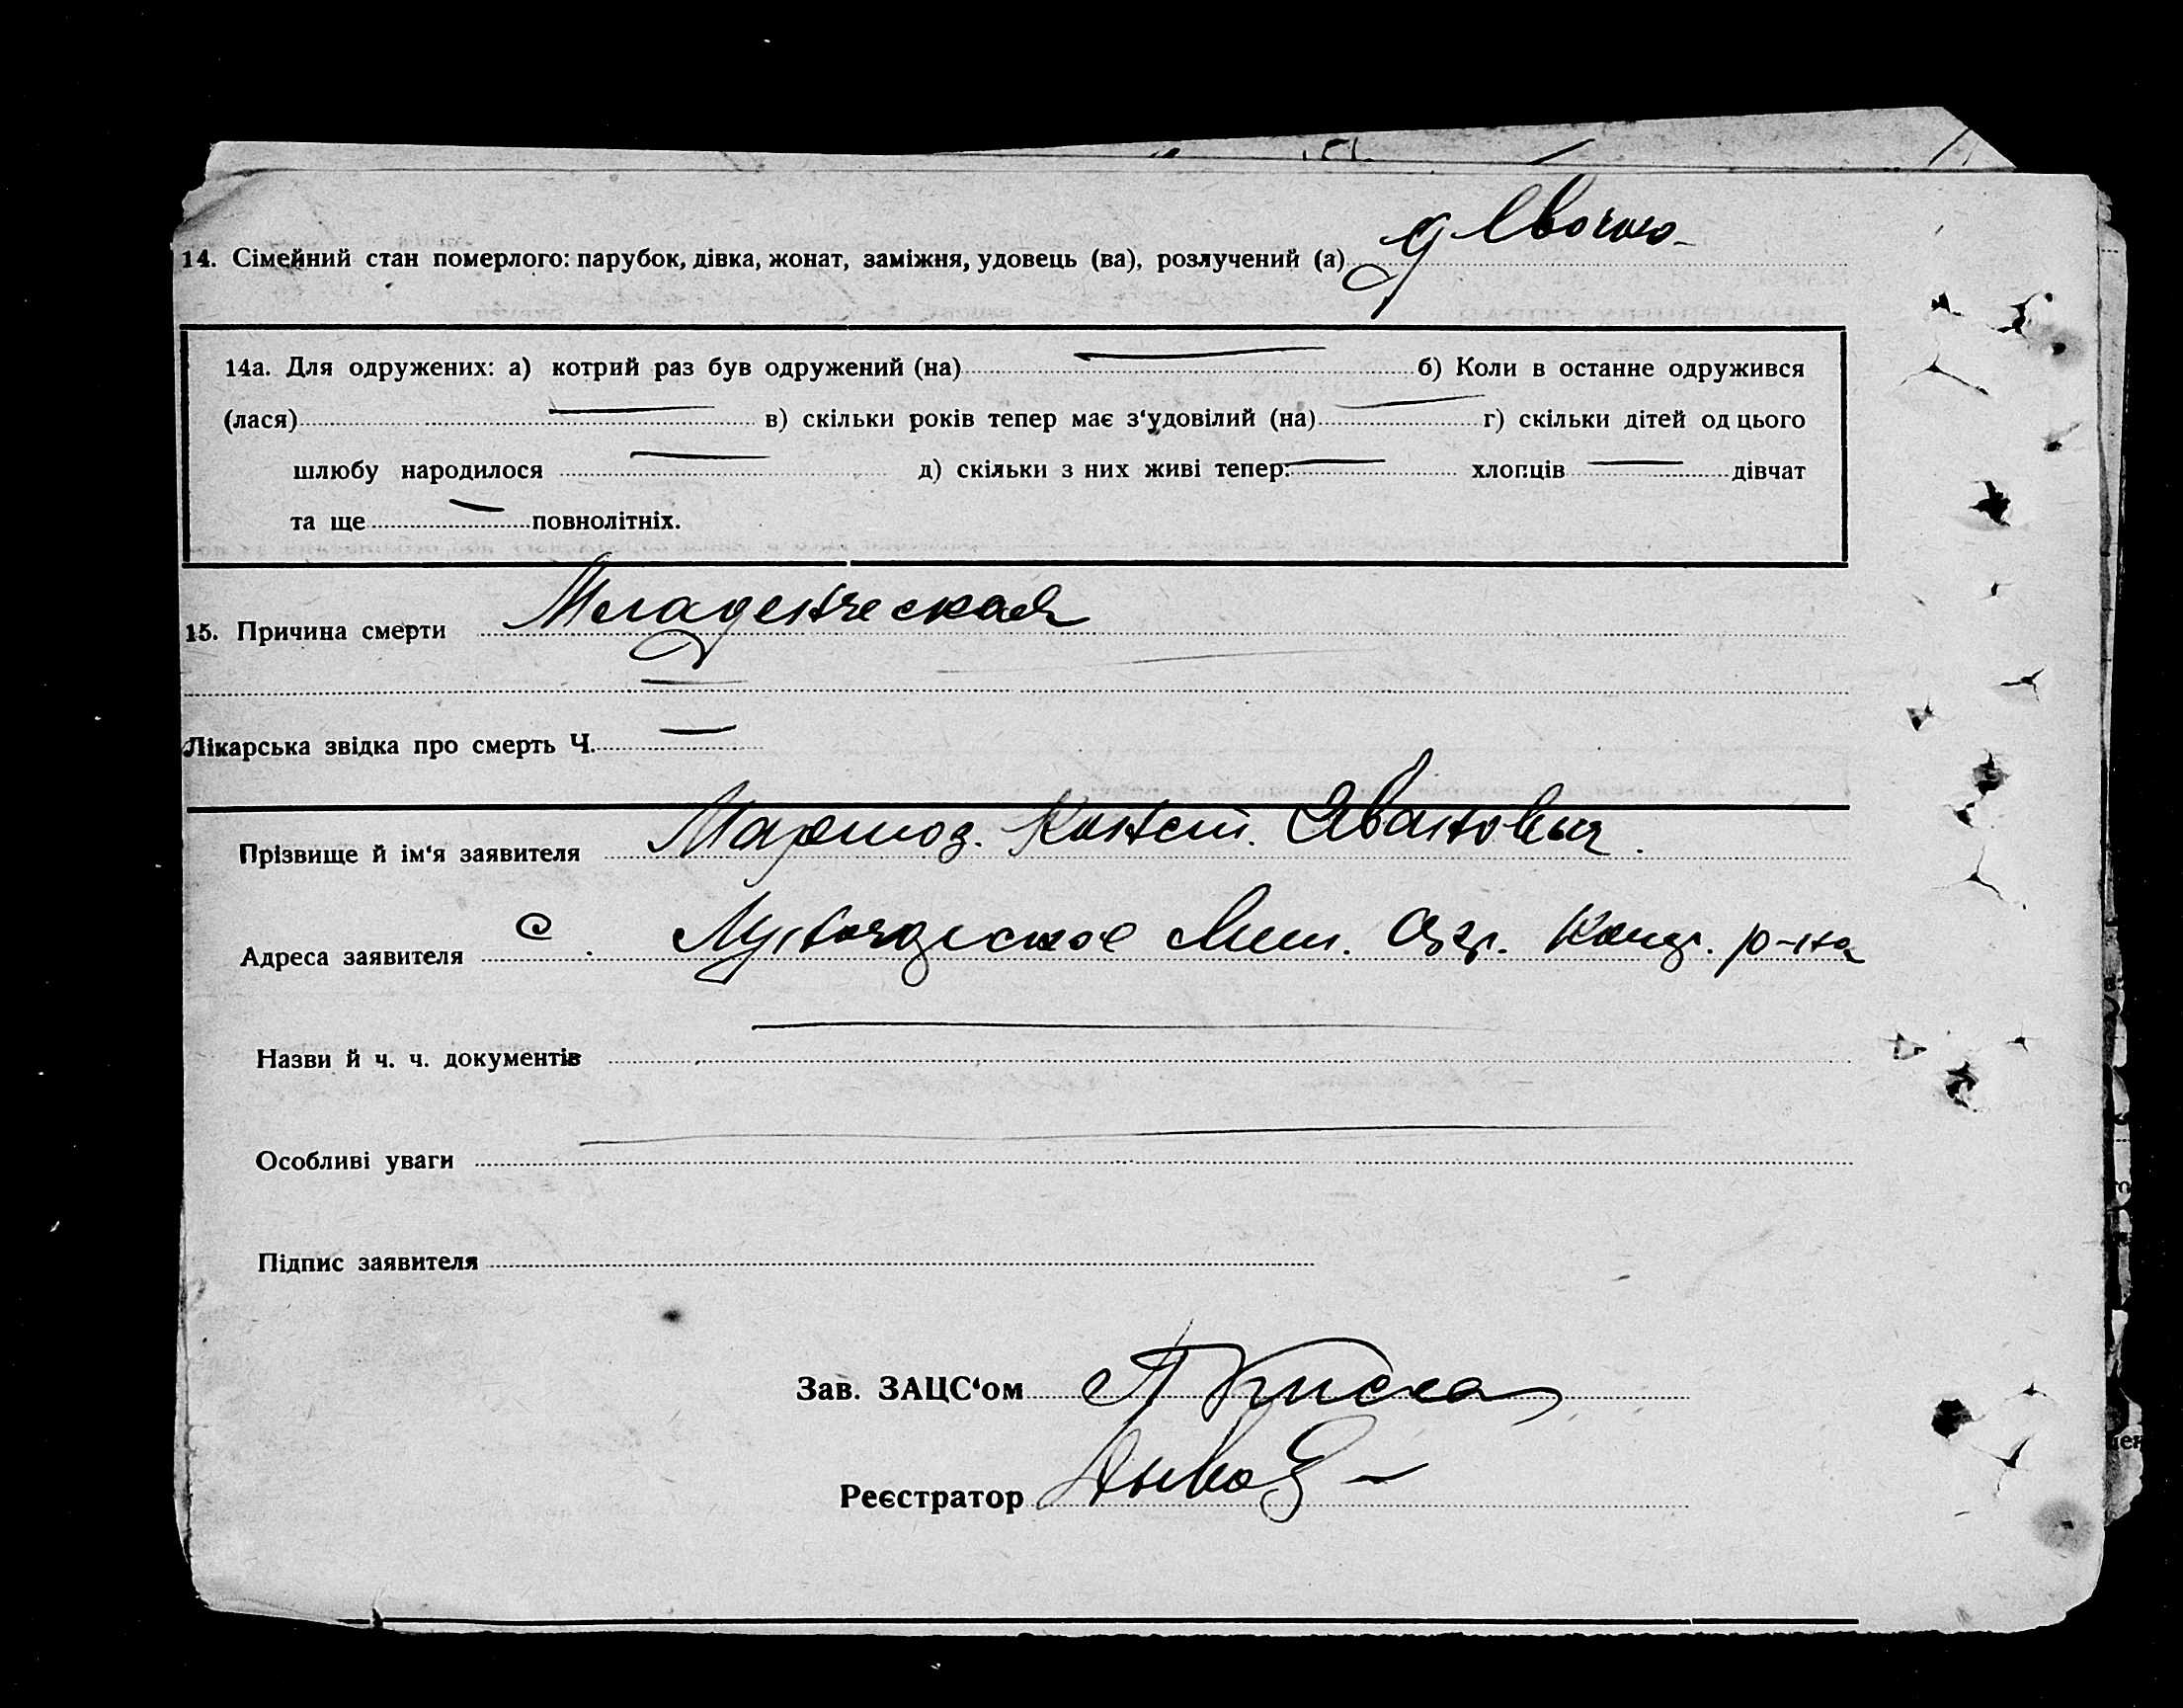 14. Сімейний стан померлого: парубок, дівка, жонат, заміжня, удовець (ва), розлучений (а)
14а. Для одружених: а) котрий раз був одружений (на) б) Коли в останне одружився
(лася) в) скільки років тепер має з‘удовілий (на) г) скільки дітей од цього
шлюбу народилося д) скільки з них живі тепер: хлопців дівчат
та ще повнолітніх.
15. Причина смерти Младенческая
Лікарська звідка про смерть Ч.
Прізвище й ім‘я заявителя Конст. Ивановыч.
Адреса заявителя с. р-на
Назви й ч. ч. документів
Особливі уваги
Підпис заявителя
Зав. ЗАЦС‘ом
Реєстратор